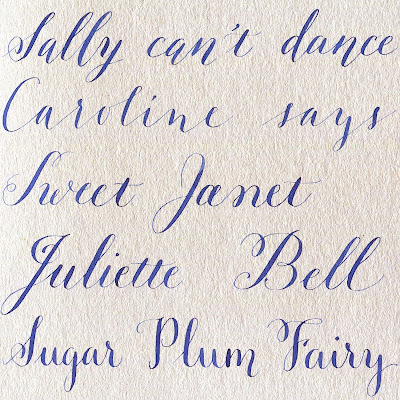 Sally can't dance
Caroline says
Sweet Janet
Juliette Bell
Sugar Plum Fairy